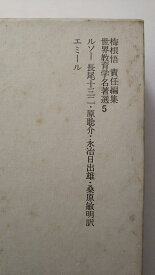 梅根悟 責任編集
世界教育学名著選5
ルソー 長尾十三二・原聡介・永治日出雄・桑原敏明訳
エミール